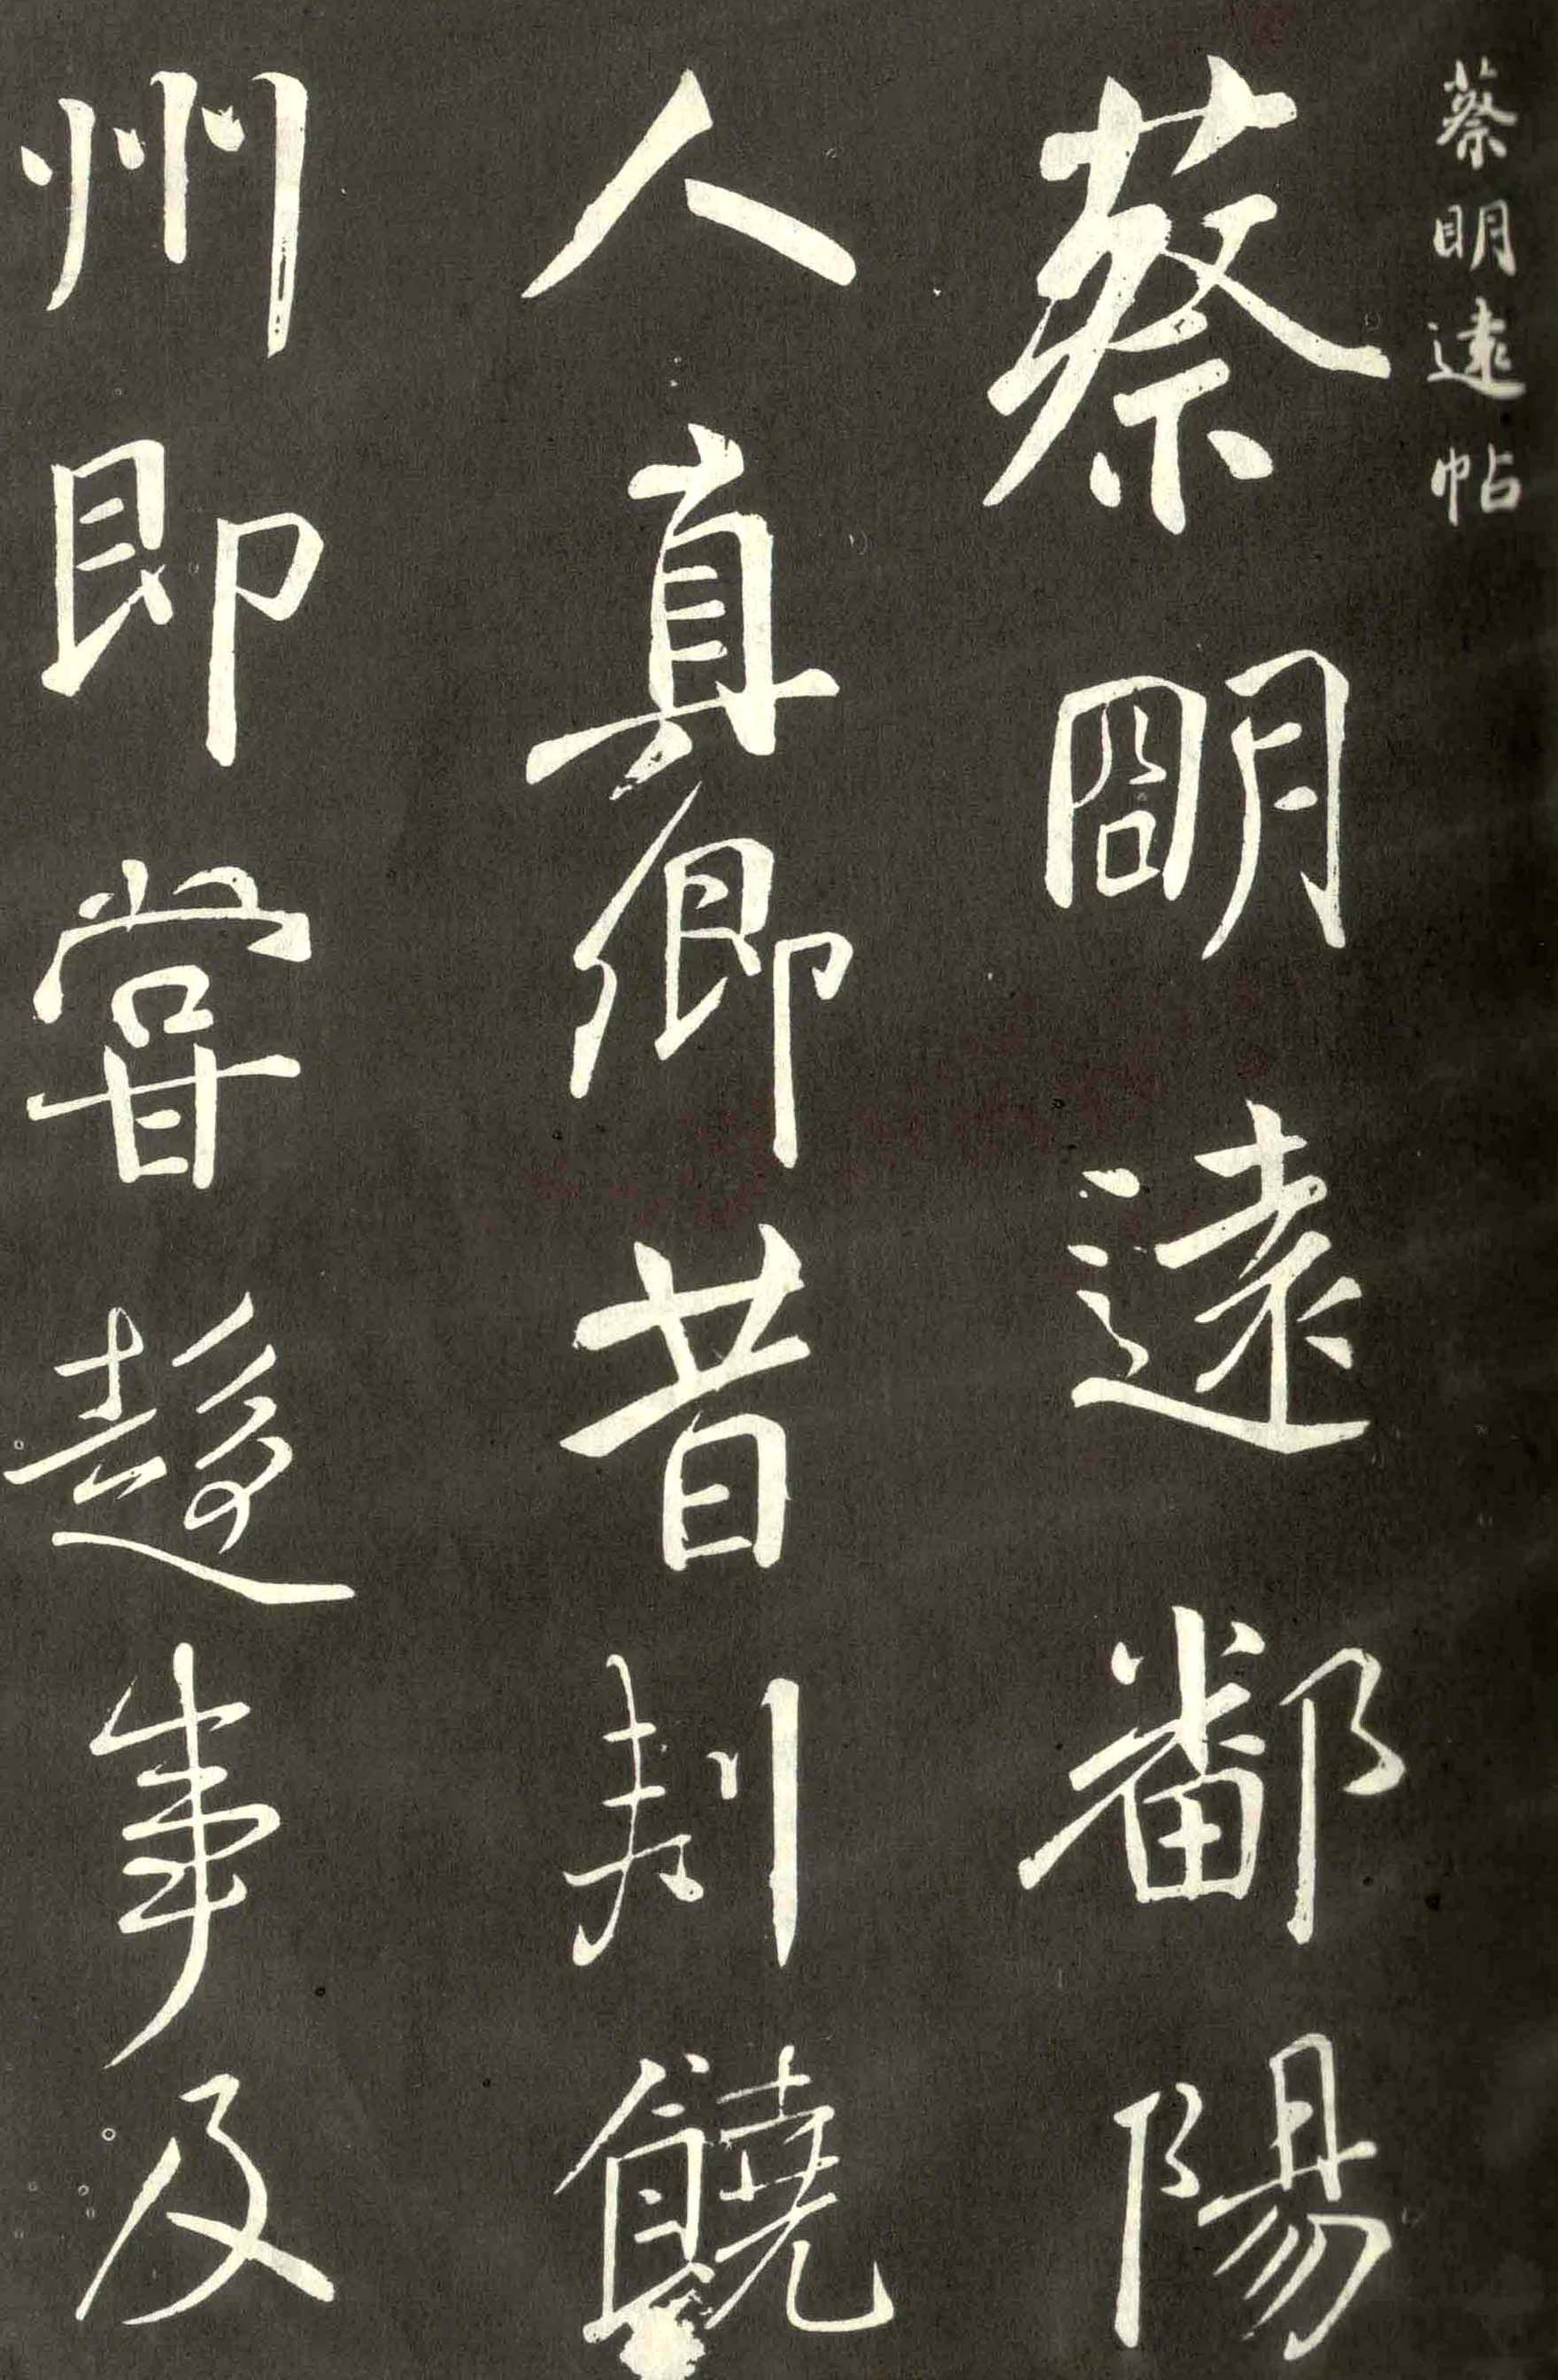 蔡明遠帖
蔡明遠鄱陽
人真卿昔刾饒
州即甞趍事及